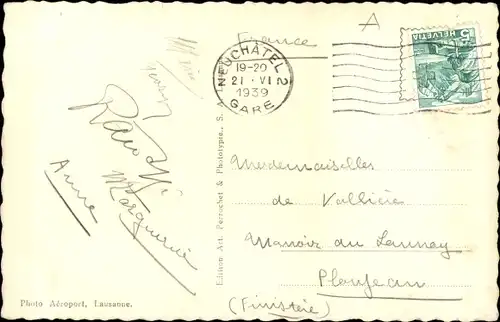 A
France
HELVETIA
5
NEUCHÂTEL 2
19-20
21·VI
1939
GARE
Marguerite
Anne
Edition Art. Perrochet & Phototypie, S. A.
Mesdemoiselles
de Vallière
Manoir du Launay
Ploujean
(Finistère)
Photo Aéroport, Lausanne.